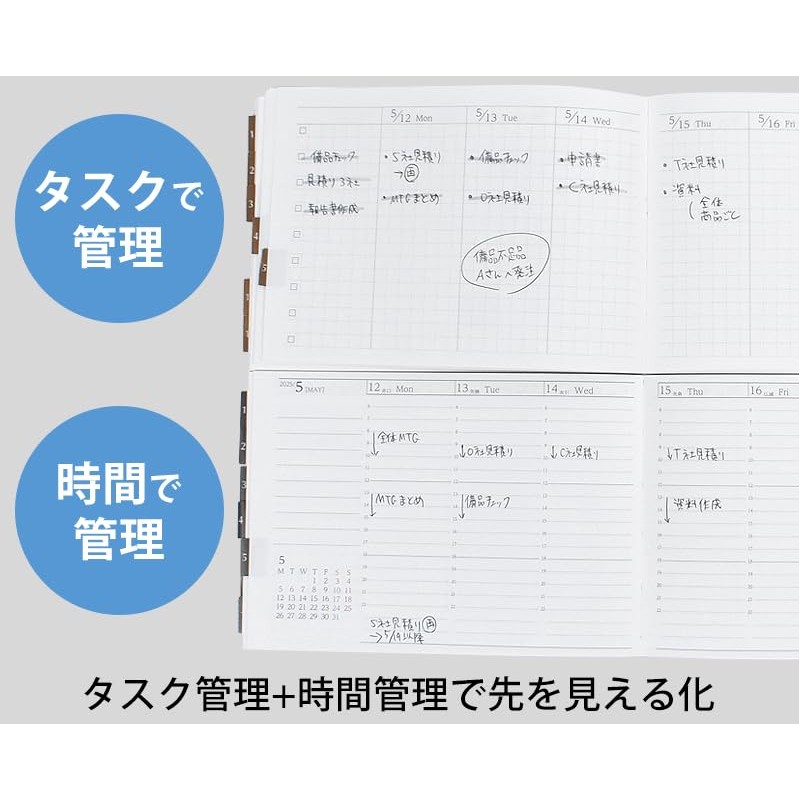 タスクで
管理
5/12 Mon
5/13 Tue
5/14 Wed
5/15 Thu
5/16 Fri
備品チェック
見積り 3社
報告書作成
・S社見積り
→再
・MTGまとめ
・備品チェック
・O社見積り
備品不足品
Aさんへ発注
・申請書
・C社見積り
・T社見積り
・資料
全体
商品ごと
1
2
3
4
5
時間で
管理
2025/5 [MAY]
12 Mon
13 Tue
14 Wed
15 Thu
16 Fri
↓全体MTG
↓O社見積り
↓C社見積り
↓T社見積り
↓MTGまとめ
↓備品チェック
↓資料作成
5
M T W T F S S
1 2 3 4
5 6 7 8 9 10 11
12 13 14 15 16 17 18
19 20 21 22 23 24 25
26 27 28 29 30 31
S社見積り再
→5/19以降
1
2
3
4
5
タスク管理+時間管理で先を見える化